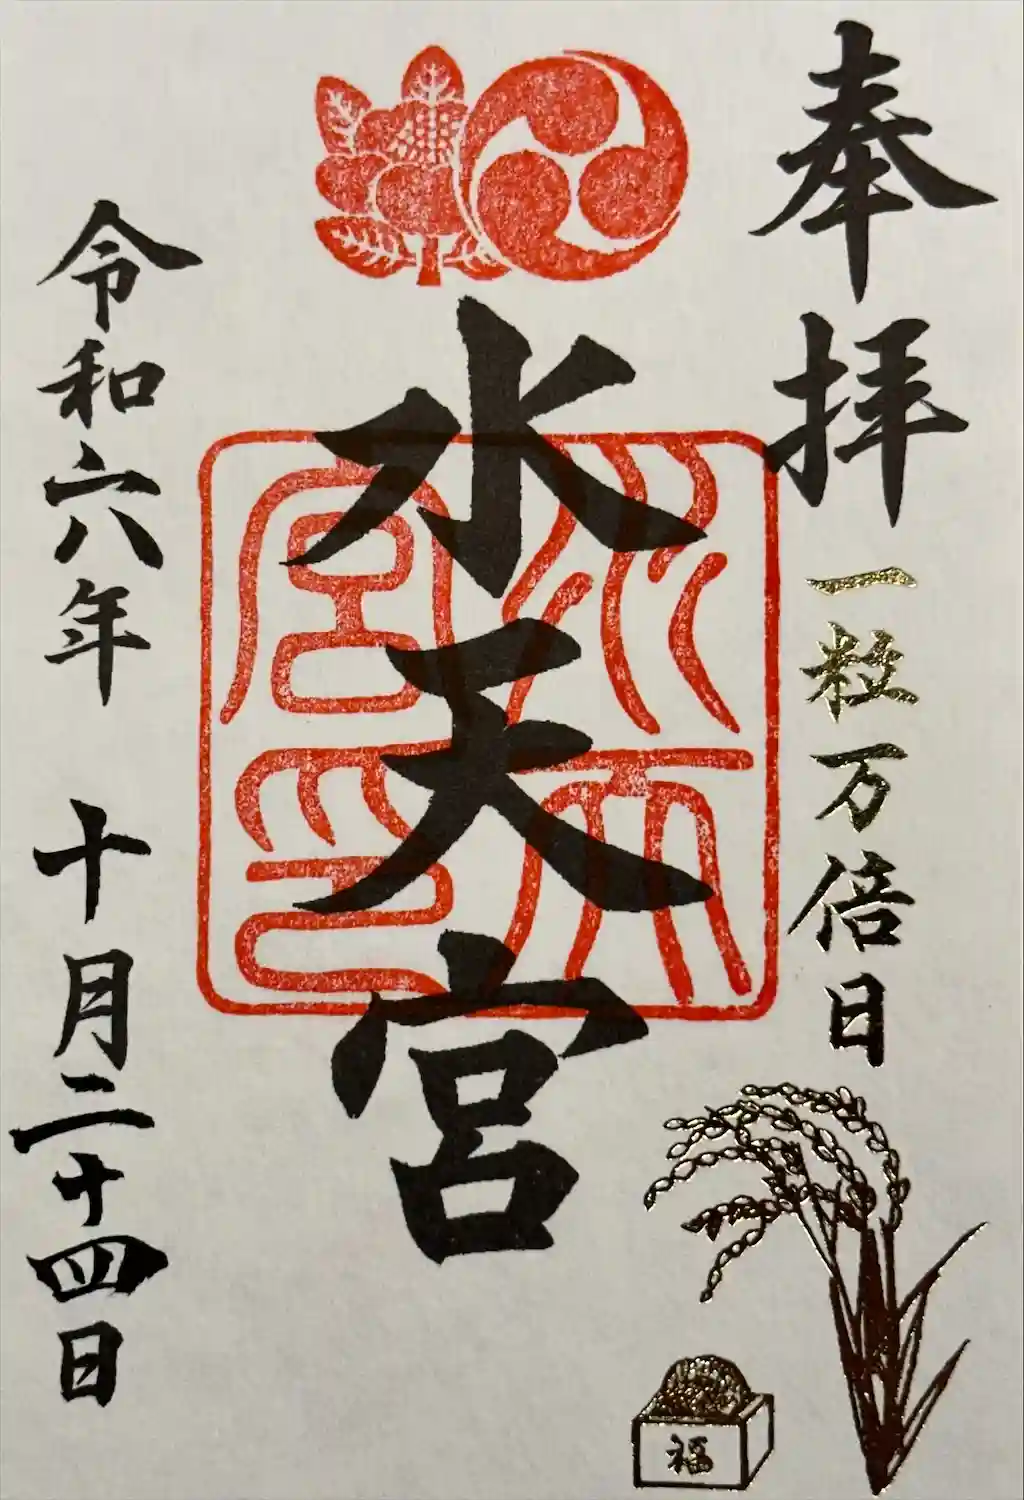 奉拝
一粒万倍日
水天宮
水天宮印
令和六年 十月二十四日
福